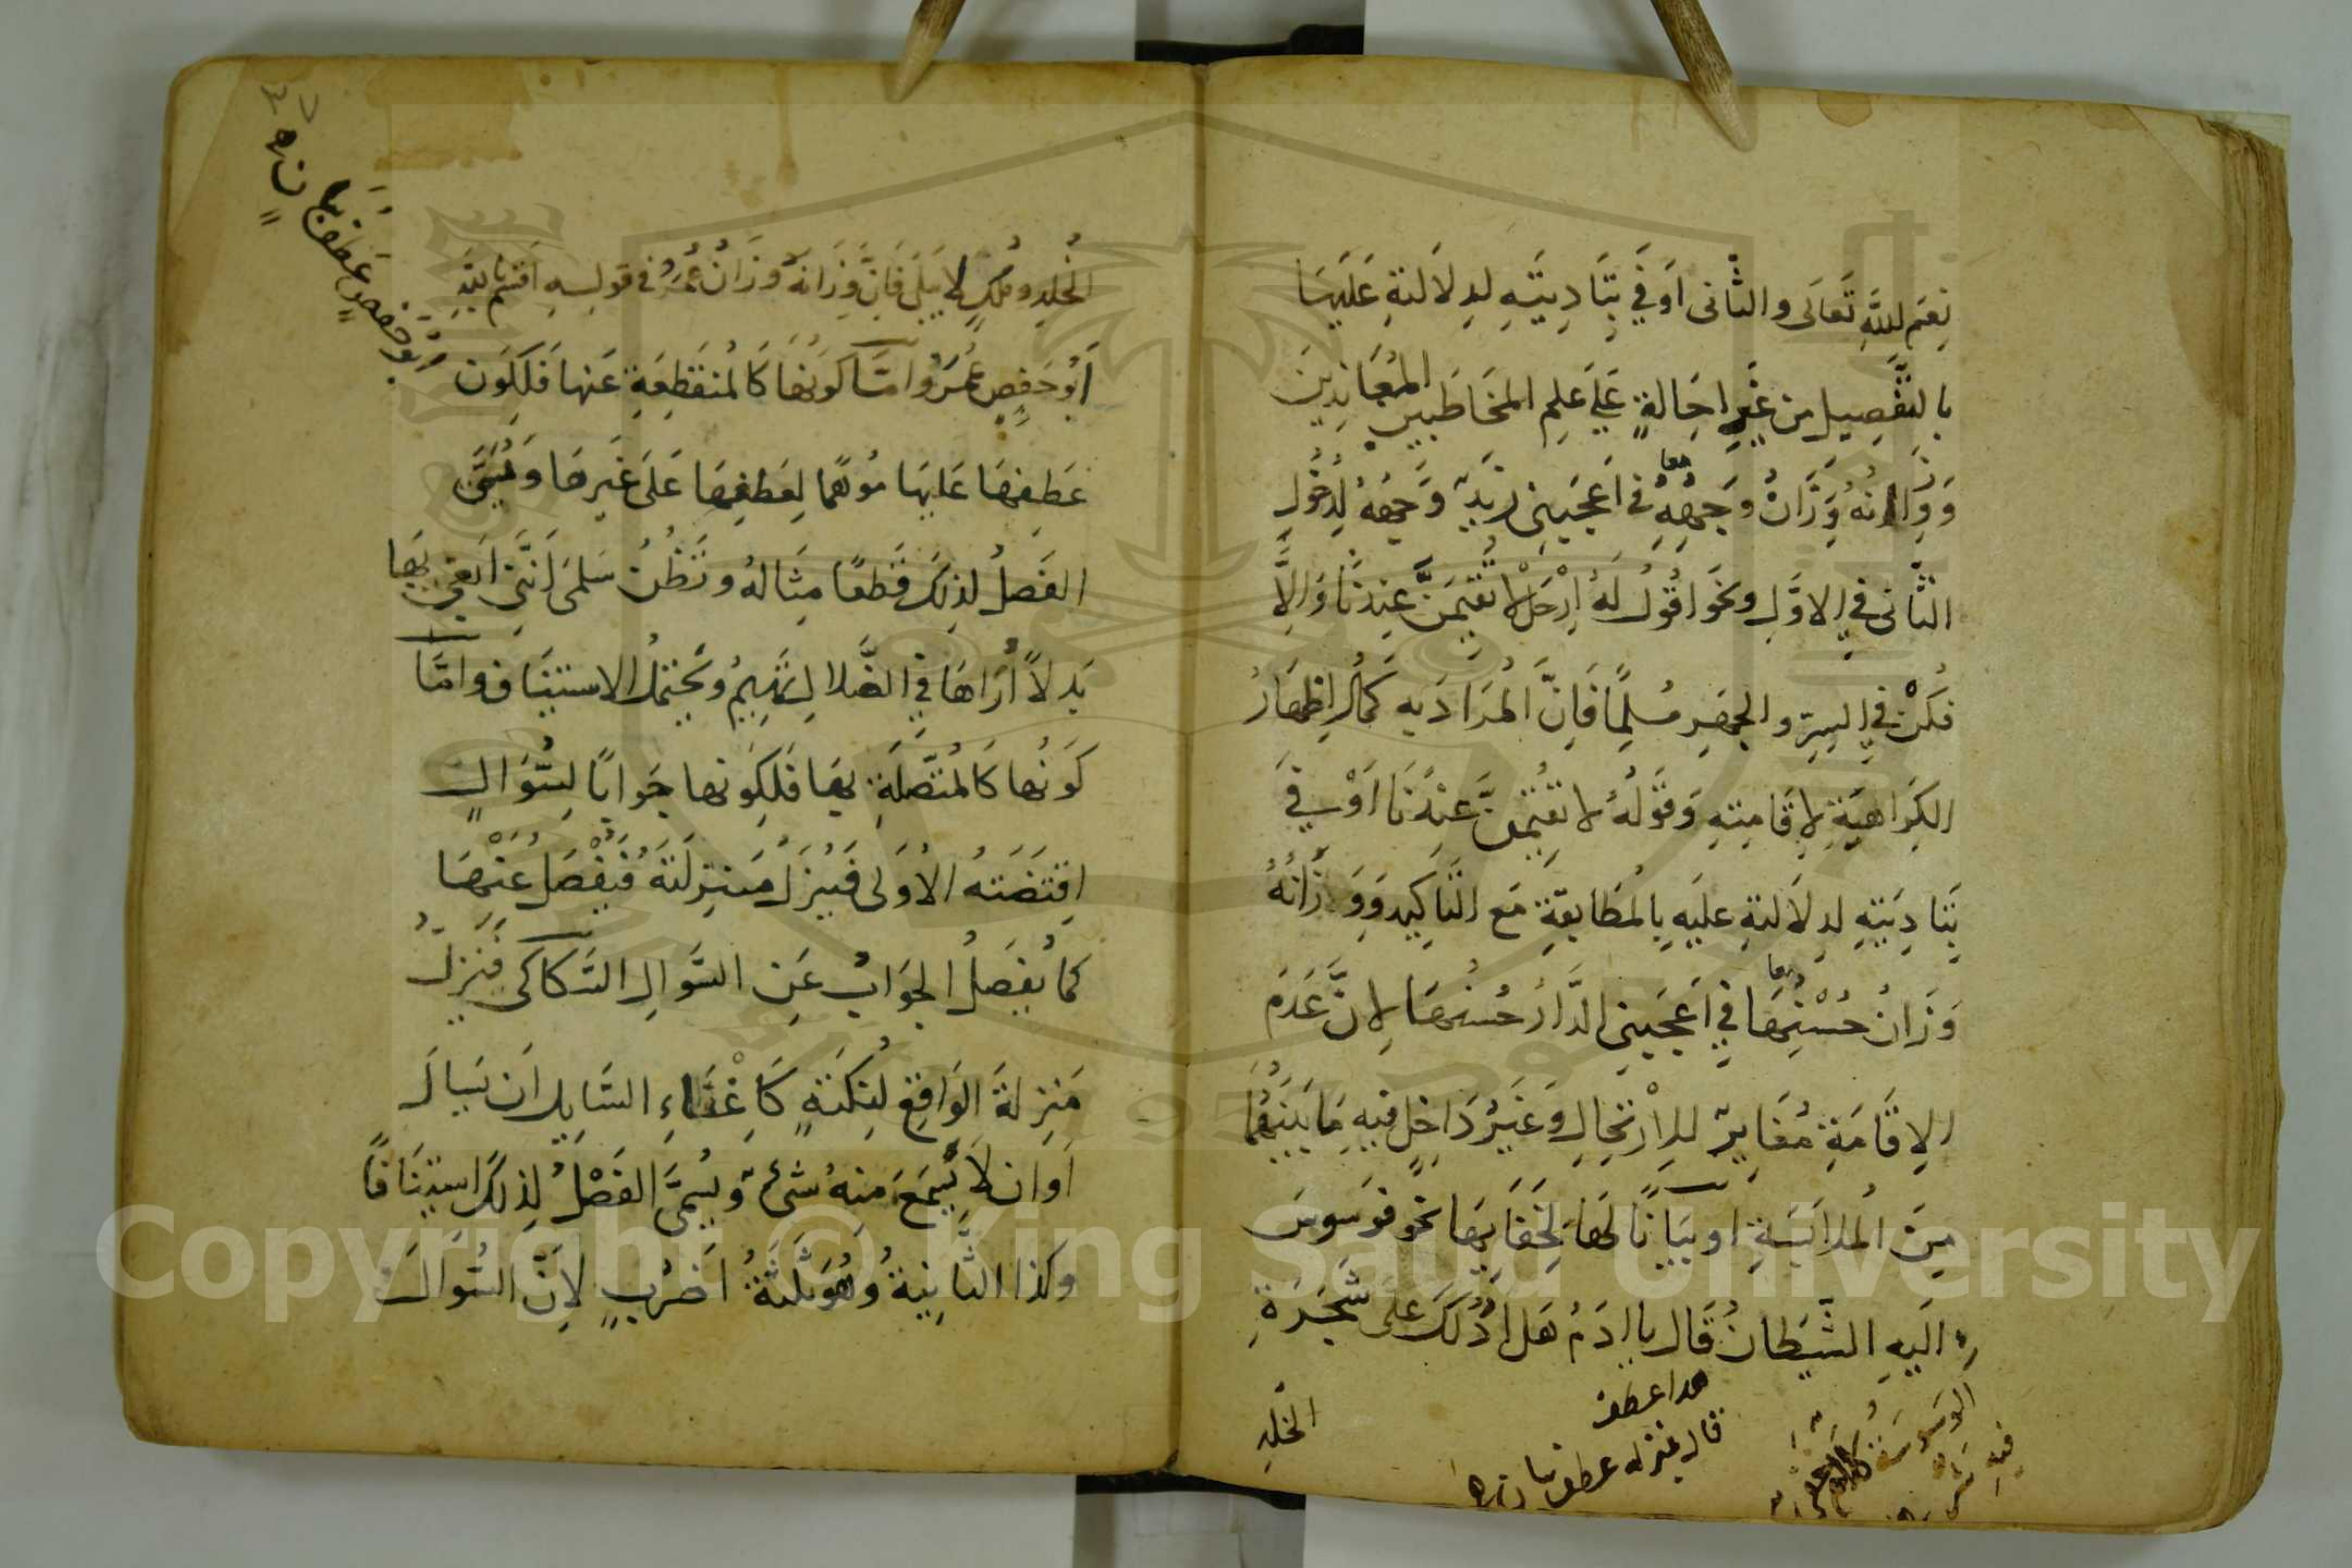 نِعَمِ اللهِ تَعَالَى والثَّانى اَوْفَى بِتَأدِيَتِهِ لِدلَالَتِهِ عَلَيهَا
بالتَّفْصِيلِ من غَيرِ اِحَالَةٍ عَلَى عِلمِ المخَاطَبِينَ المُعَانِدِينَ
وَوِزَانُهُ وِزَانُ وَجهُهُ فى اَعجَبَنِى زَيدٌ وَجهُهُ لِدُخُولِ
الثَّانى فى الاوَّلِ ونحو اقُولُ لَهُ اِرْحَلْ لا تُقِيمَنَّ عِندَنَا وَاِلاَّ
فكُنْ فى السِرِّ والجهرِ مُسلِمًا فَاِنَّ المُرَادَ بِهِ كمالُ اِظهَارِ
الكَرَاهِيَةِ لِاِقَامَتِهِ وَقَولُهُ لا تُقِيمَنَّ عِندَنَا اَوْفى
بِتَأدِيَتِهِ لِدلَالَتِهِ عليهِ بِالمُطَابَقَةِ مَعَ التَّاكِيدِ وَوِزَانُهُ
وِزَانُ حُسْنُهَا فى اَعجَبَنِى الدَّارُ حُسنُهَا لِاَنَّ عَدَمَ
الاِقَامَةِ مُغَايِرٌ لِلاِرْتِحَالِ وَغَيرُ دَاخِلٍ فيهِ مَا بَينَهُمَا
مِنَ المُلابَسَةِ او بَيَانًا لَهَا لِخَفَايِهَا نحو فَوَسوَسَ
اِلَيهِ الشَّيطَانُ قَالَ يا ادَمُ هَل اَدُلُّكَ عَلَى شَجَرَةِ
هذا عطف
قال بمنزله عطف بيان
الوَسوَسَة
فيهِ
الخُلدِ
الخُلدِ ومُلكٍ لا يَبلَى فَاِنَّ وِزَانَهُ وِزَانُ عُمَرُ فى قولِهِ اَقسَمَ بِاللهِ
اَبُو حَفصٍ عُمَرُ وامَّا كَونُهَا كَالمُنقَطِعَةِ عَنها فَلِكَونِ
عَطفِهَا عَلَيهَا مُوهِمًا لِعَطفِهَا عَلَى غَيرِهَا وَيُسَمَّى
الفَصلُ لِذلِكَ قَطعًا مِثَالُهُ وتَظُنُّ سَلمَى اَنَّنِى اَبغِى بِهَا
بَدلاً اُرَاهَا فى الضَّلالِ تَهِيمُ ويَحتَمِلُ الاستينَاف وامَّا
كَونُها كَالمُتَّصِلَةِ بِهَا فَلِكَونِها جَوابًا لِسُؤَالٍ
اِقتَضَتهُ الاُولَى فَيُنَزَّلُ مَنزِلَتَهُ فَيُفْصَلُ عَنْهَا
كما يُفصَلُ الجَوَابُ عَنِ السُؤالِ السَّكاكى فَيُنَزَّلُ
مَنزِلَةَ الوَاقِعِ لِنُكتَةٍ كَاِغْنَاءِ السَّايِلِ اَن يَسالَ
اَو ان لاَ يُسمَعَ مِنهُ شئٌ ويُسَمَّى الفَصْلُ لِذلِكَ استِينَافًا
وكذا الثَّانِيةُ وَهُوَ ثلثَةُ اَضرُبٍ لاَنَّ السُّؤالَ
اَبُو حَفصٍ عَطف بيا
Copyright © King Saud University